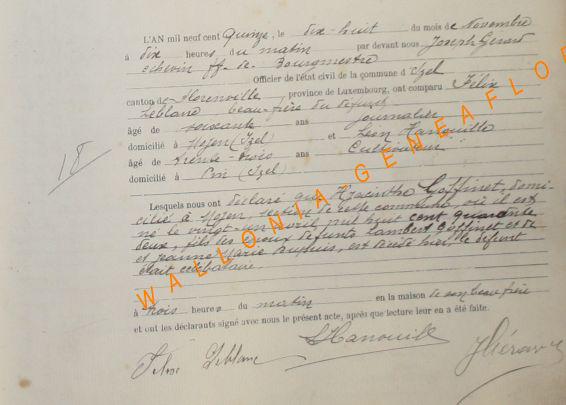 L'AN mil neuf cent Quinze, le dix-huit du mois de Novembre
à dix heures du matin par devant nous Joseph Gérard
Echevin ff. de Bourgmestre
Officier de l'état civil de la commune d'Izel
canton de Florenville, province de Luxembourg, ont comparu Félix
Leblanc beau-frère du défunt
âgé de soixante ans journalier
domicilié à Moyen (Izel) et Léon Hanouille
âgé de trente-trois ans Cultivateur
domicilié à Pin (Izel)
18
Lesquels nous ont déclaré que Hyacinthe Goffinet, domi-
cilié à Moyen, section de cette commune, où il est
né le vingt-un avril mil huit cent quarante
deux, fils des époux défunts Lambert Goffinet et de
et Jeanne Marie, est décédé hier, le défunt
était célibataire.
à trois heures du matin en la maison de son beau frère
et ont les déclarants signé avec nous le présent acte, après que lecture leur en a été faite.
Félix Leblanc
LHanouille
JGérard
WALLONIA-GENEAFLO